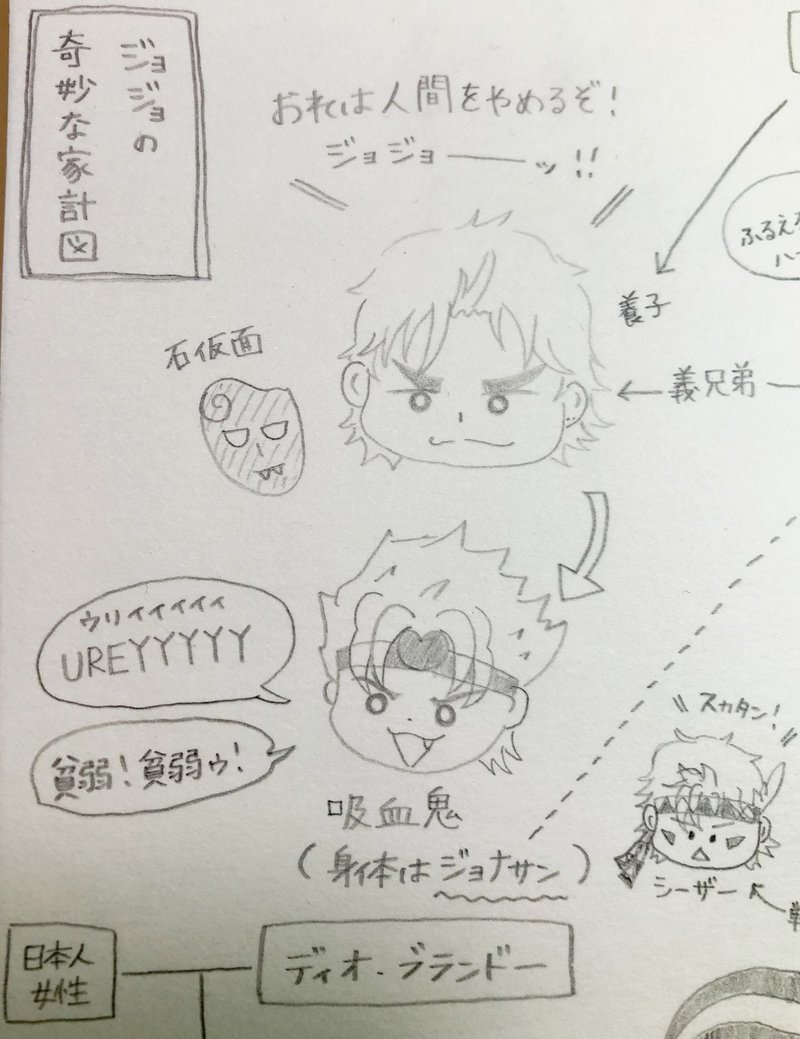 ジョジョの
奇妙な家計図
おれは人間をやめるぞ!
ジョジョ──ッ!!
ふるえる
ハ
養子
石仮面
義兄弟
ウリィィィィィ
UREYYYYY
貧弱!貧弱ゥ!
スカタン!
吸血鬼
(身体はジョナサン)
シーザー
日本人
女性
ディオ・ブランドー